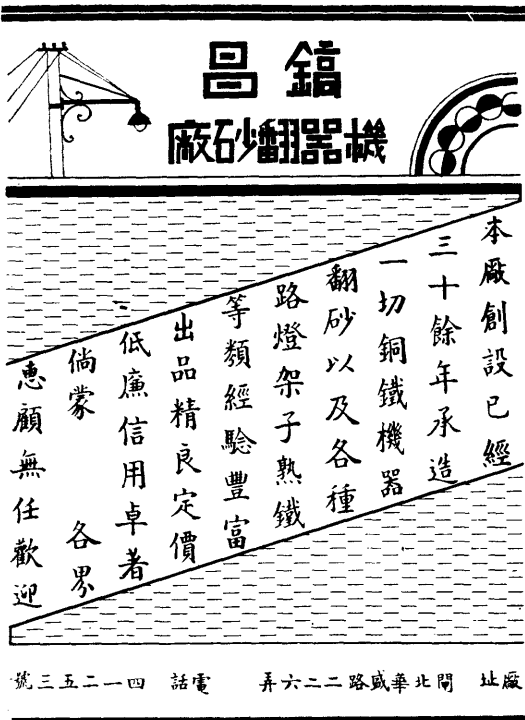 鎬昌
機器翻砂廠
本廠創設已經
三十餘年承造
一切銅鐵機器
翻砂以及各種
路燈架子熟鐵
等類經驗豐富
出品精良定價
低廉信用卓著
倘蒙 各界
惠顧無任歡迎
廠址 閘北華盛路二二六弄 電話 四一二五三號